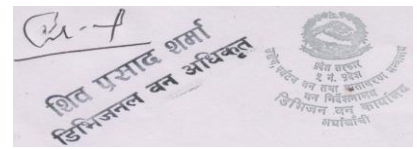 शिव प्रसाद शर्मा
डिभिजनल वन अधिकृत
प्रदेश सरकार
१ नं. प्रदेश
उद्योग, पर्यटन वन तथा वातावरण मन्त्रालय
वन निर्देशनालय
डिभिजन वन कार्यालय